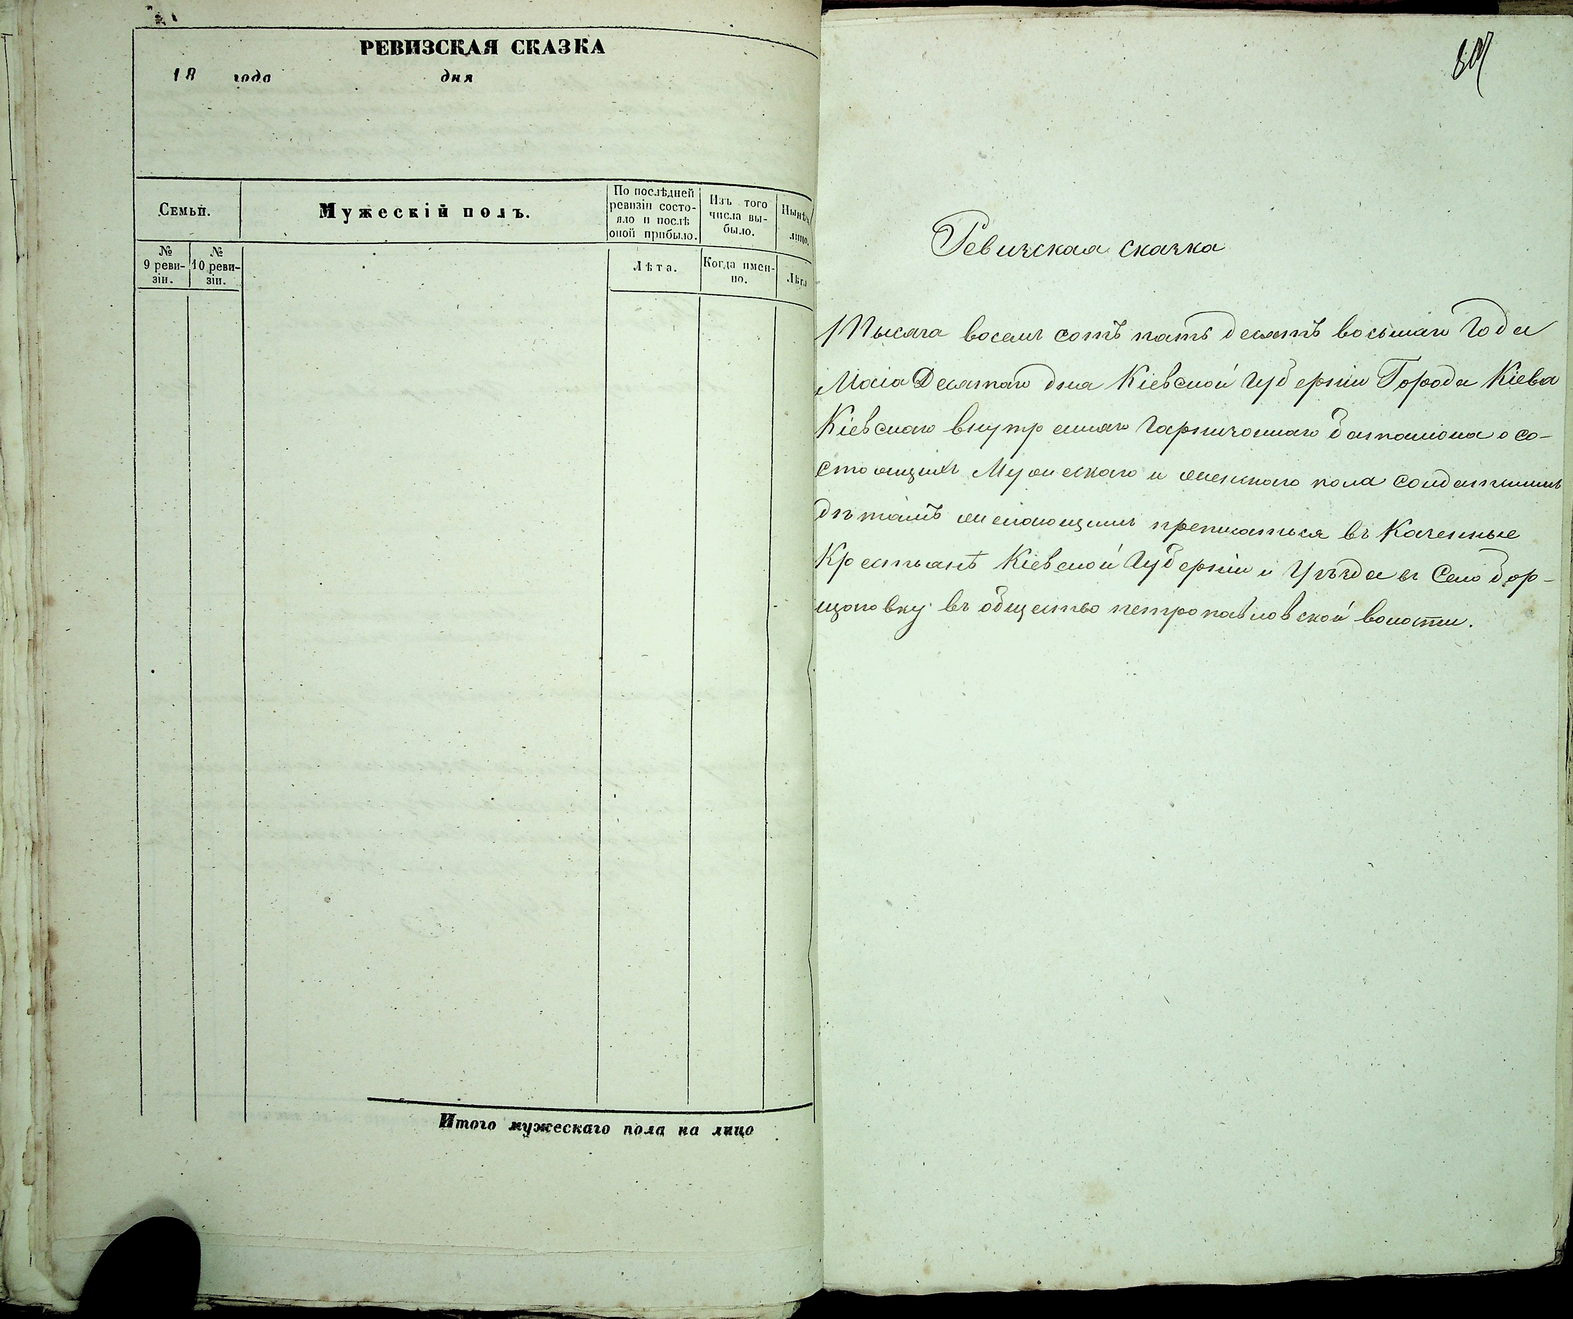 РЕВИЗСКАЯ СКАЗКА
18 года дня
Семьи.
Мужескій полъ.
По послѣдней ревизіи состояло и послѣ оной прибыло.
Изъ того числа выбыло.
Нынѣ
лицо.
№ 9 ревизіи.
№ 10 ревизіи.
Лѣта.
Когда именно.
Лѣта
Итого мужескаго пола на лицо
Ревизская сказка
Тысяча восемь сотъ пять десятъ восьмаго Года
Маія Десятаго дня Кіевской Губерніи Города Кіева
Кіевскаго внутренняго Гарнизоннаго баталіона о со-
стоящихъ Мужескаго и женскаго пола солдатскимъ
дѣтямъ желающимъ преписаться въ Казенные
Крестьянѣ Кіевской Губерніи и Уѣзда въ Село Бор-
щаговку въ общество петропавловской волости.